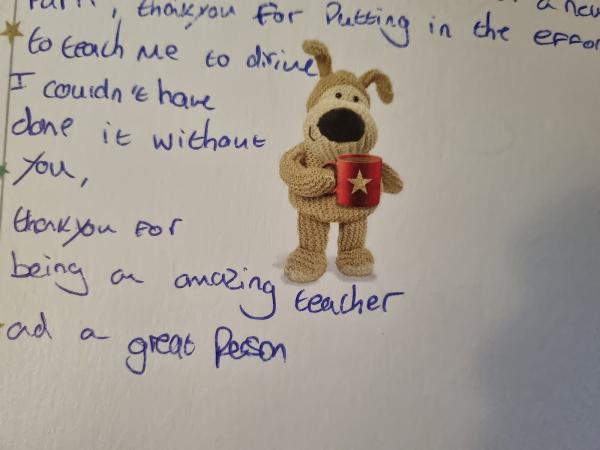 , thankyou for Putting in the effor
to teach me to drive
I couldn't have
done it without
you,
thankyou for
being an amazing teacher
ad a great Person